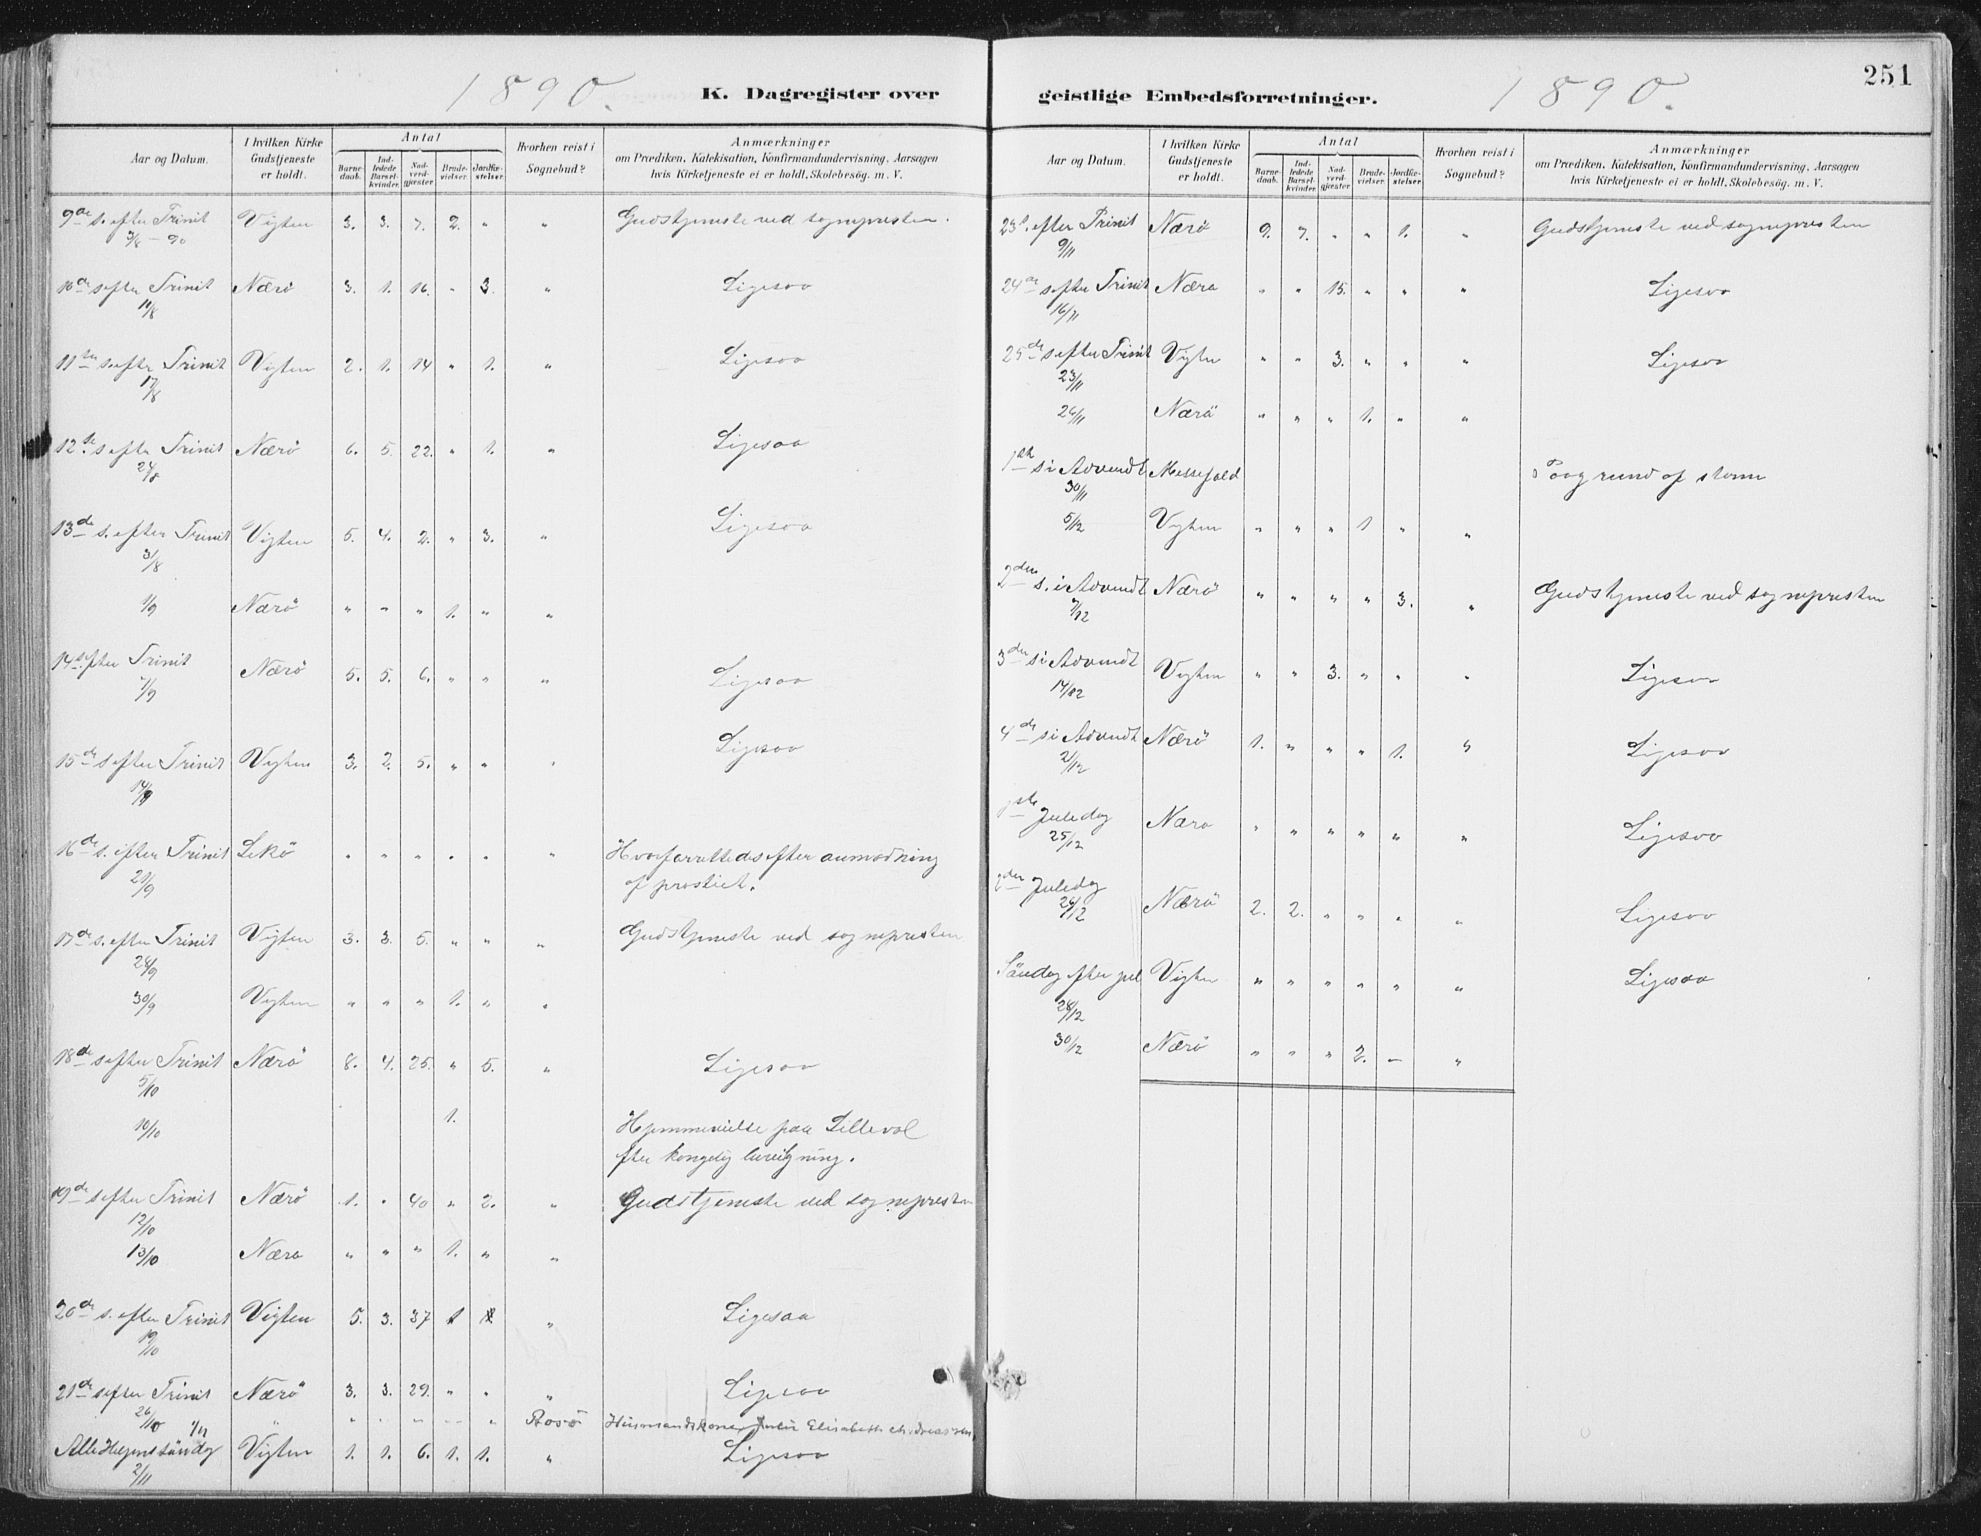 1890.
K. Dagregister over
Aar og Datum.
I hvilken Kirke Gudstjeneste er holdt.
Antal
Barne-daab. Ind-ledede Barsel-kvinder. Nad-verd-gjester Brude-vielser Jordfæ-stelser
Hvorhen reist i Sognebud?
Anmærkninger
om Prædiken, Katekisation, Konfirmandundervisning, Aarsagen
hvis Kirketjeneste ei er holdt, Skolebesøg. m. V.
9de s. efter Trinit Vigten 3. 3. 7. 2. " " Gudstjeneste ved sognepresten.
3/8 - 90
10de s efter Trinit Nærö 3. 1. 16. " 3. " Ligesaa
10/8
11te s. efter Trinit Vigten 2. 1. 14 " 1. " Ligesaa
17/8
12te s efter Trinit Nærö 6. 5. 22. " 1. " Ligesaa
24/8
13de s. efter Trinit Vigten 5. 4. 2. " 3. " Ligesaa
31/8
1/9 Nærö " " " 1. " "
14 s. efter Trinit Nærö 5. 5. 6. " " " Ligesaa
7/9
15de s efter Trinit Vigten 3. 2. 5. " " " Ligesaa
14/9
16de s. efter Trinit Lekö " " " " " " Hvor forrettedes efter anmodning
21/9 af prostiet.
17de s. efter Trinit Vigten 3. 3. 5. " " " Gudstjeneste ved sognepresten
28/9
30/9 Vigten " " " 1. " "
18de s efter Trinit Nærö 8. 4. 25. " 5. " Ligesaa
5/10
10/10 1. Hjemmevielse paa Lilleval
efter kongelig bevilgning.
19de s efter Trinit Nærö 1. " 40 " 2. " Gudstjeneste ved sognepresten
12/10
13/10 Nærö " " " 1. " "
20de s. efter Trinit Vigten 5. 3. 37 1 " Ligesaa
19/10
21de s efter Trinit Nærö 3. 3. 29. " " " Ligesaa
26/10 1/11 " " " " " " Rosö Husmandskone Elisabeth Andreasen.
Alle Helgens söndag Vigten 1. 1. 6. 1. 1. " Ligesaa
2/11
geistlige Embedsforretninger.
1890.
251
Aar og Datum.
I hvilken Kirke Gudstjeneste er holdt.
Antal
Barne-daab. Ind-ledede Barsel-kvinder. Nad-verd-gjester Brude-vielser Jordfæ-stelser
Hvorhen reist i Sognebud?
Anmærkninger
om Prædiken, Katekisation, Konfirmandundervisning, Aarsagen
hvis Kirketjeneste ei er holdt, Skolebesøg. m. V.
23 s. efter Trinit Nærö 9. 7. " " 1. " Gudstjeneste ved sognepresten
9/11
24de s efter Trinit Nærö " " 15. " " " Ligesaa
16/11
25de s efter Trinit Vigten " " 3. " " " Ligesaa
23/11
26/11 Nærö " " " 1. " "
1ste s i Advendt Messefald Paa grund af storm
30/11
5/12 Vigten " " " 1 " "
2den s. i Advendt Nærö " " " " 3. " Gudstjeneste ved sognepresten
7/12
3die s i Advendt Vigten " " 3. " " " Ligesaa
14/12
4de s i Advendt Nærö 1. " " " 1. " Ligesaa
21/12
1ste Juledag Nærö " " " " " " Ligesaa
25/12
2den Juledag Nærö 2. 2. " " " " Ligesaa
26/12
Söndag efter jul Vigten " " " " " " Ligesaa
28/12
30/12 Nærö " " " 2. — "